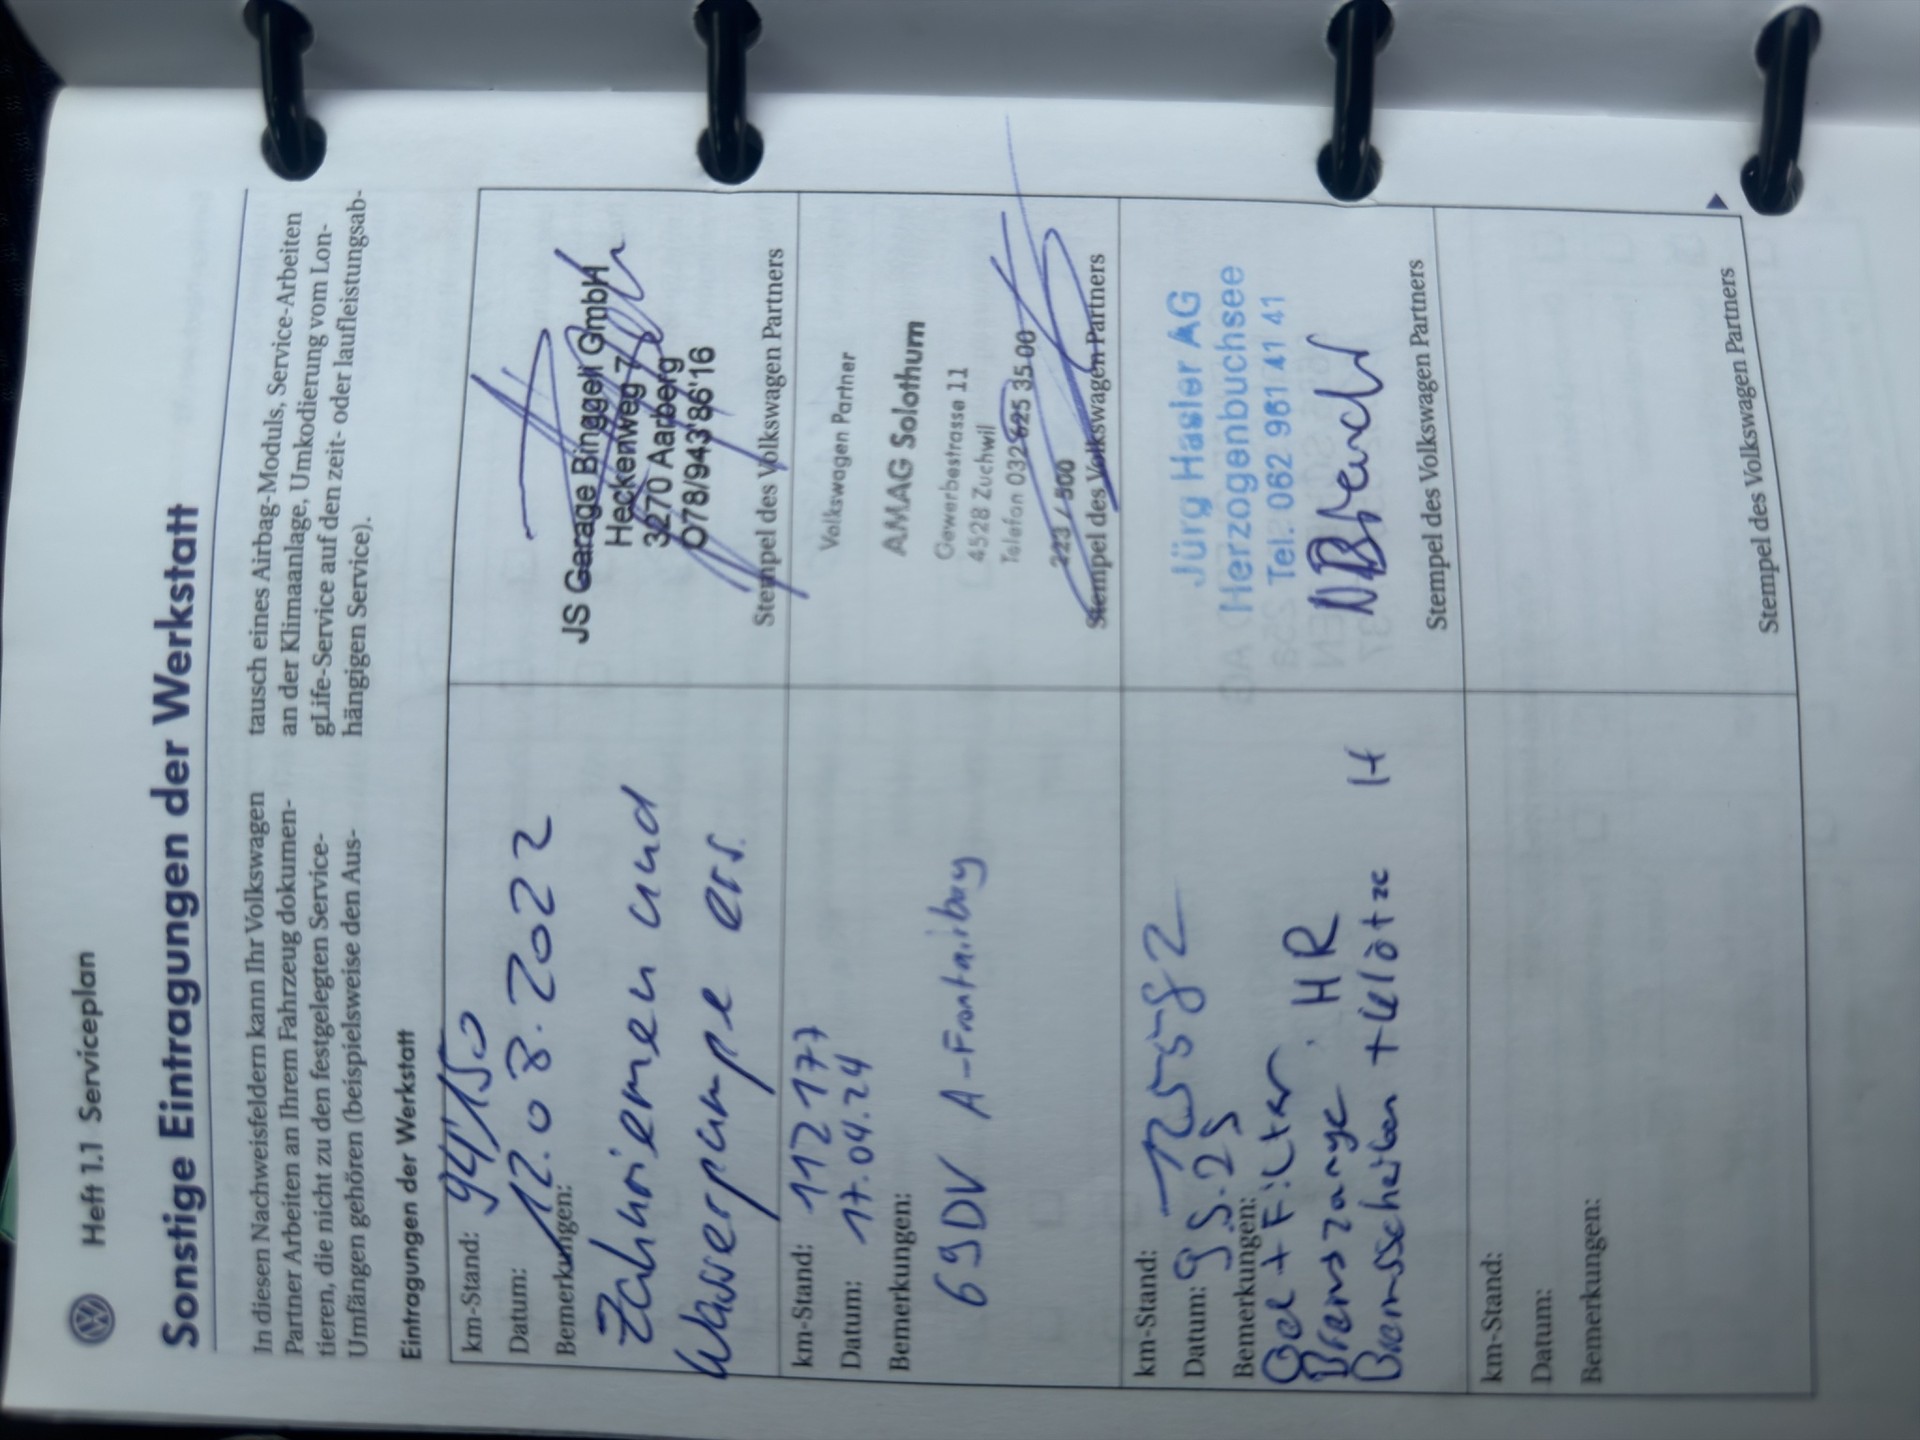 Heft 1.1 Serviceplan
Sonstige Eintragungen der Werkstatt
In diesen Nachweisfeldern kann Ihr Volkswagen
Partner Arbeiten an Ihrem Fahrzeug dokumen-
tieren, die nicht zu den festgelegten Service-
Umfängen gehören (beispielsweise den Aus-
tausch eines Airbag-Moduls, Service-Arbeiten
an der Klimaanlage, Umkodierung vom Lon-
gLife-Service auf den zeit- oder laufleistungsab-
hängigen Service).
Eintragungen der Werkstatt
km-Stand: 94'150
Datum: 12.08.2022
Bemerkungen:
Zahnriemen und
Wasserpumpe ers.
JS Garage Binggeli GmbH
Heckenweg 7
3270 Aarberg
078/943'86'16
Stempel des Volkswagen Partners
km-Stand: 112177
Datum: 17.04.24
Bemerkungen:
69DV A-Frontairbag
Volkswagen Partner
AMAG Solothurn
Gewerbestrasse 11
4528 Zuchwil
Telefon 032 625 35 00
223 / 500
Stempel des Volkswagen Partners
km-Stand:
Datum: 9.5.25
Bemerkungen:
Oel + Filter
Bremszange HR
Bremsscheiben + Klötze
Jürg Hasler AG
Herzogenbuchsee
Tel. 062 961 41 41
Stempel des Volkswagen Partners
km-Stand:
Datum:
Bemerkungen:
Stempel des Volkswagen Partners